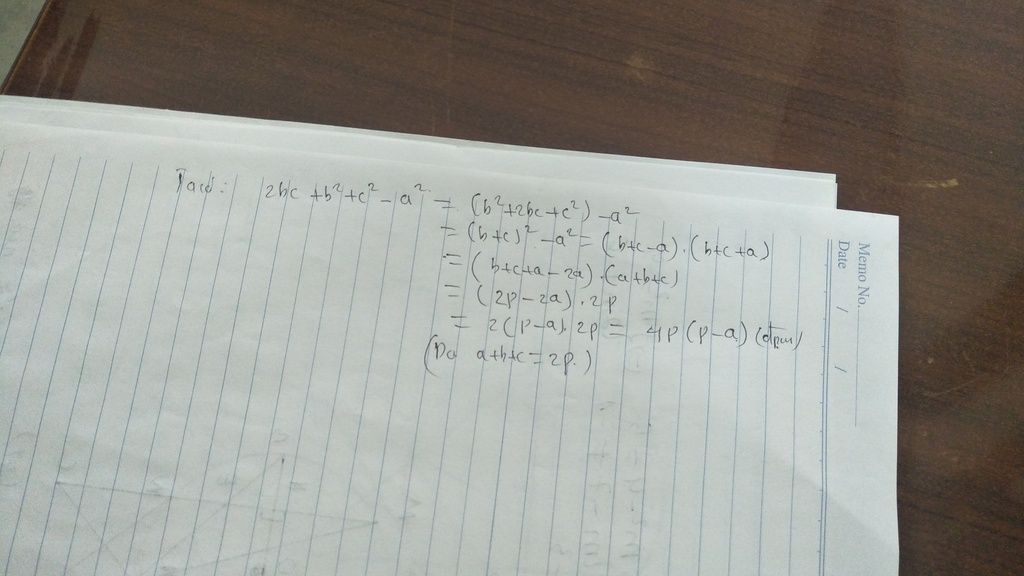 Ta có: 2bc + b² + c² - a² = (b² + 2bc + c²) - a²
= (b+c)² - a² = (b+c-a).(b+c+a)
= (b+c+a-2a).(a+b+c)
= (2p-2a).2p
= 2(p-a).2p = 4p(p-a) (đpcm)
(Do a+b+c=2p.)
Memo No.
Date / /